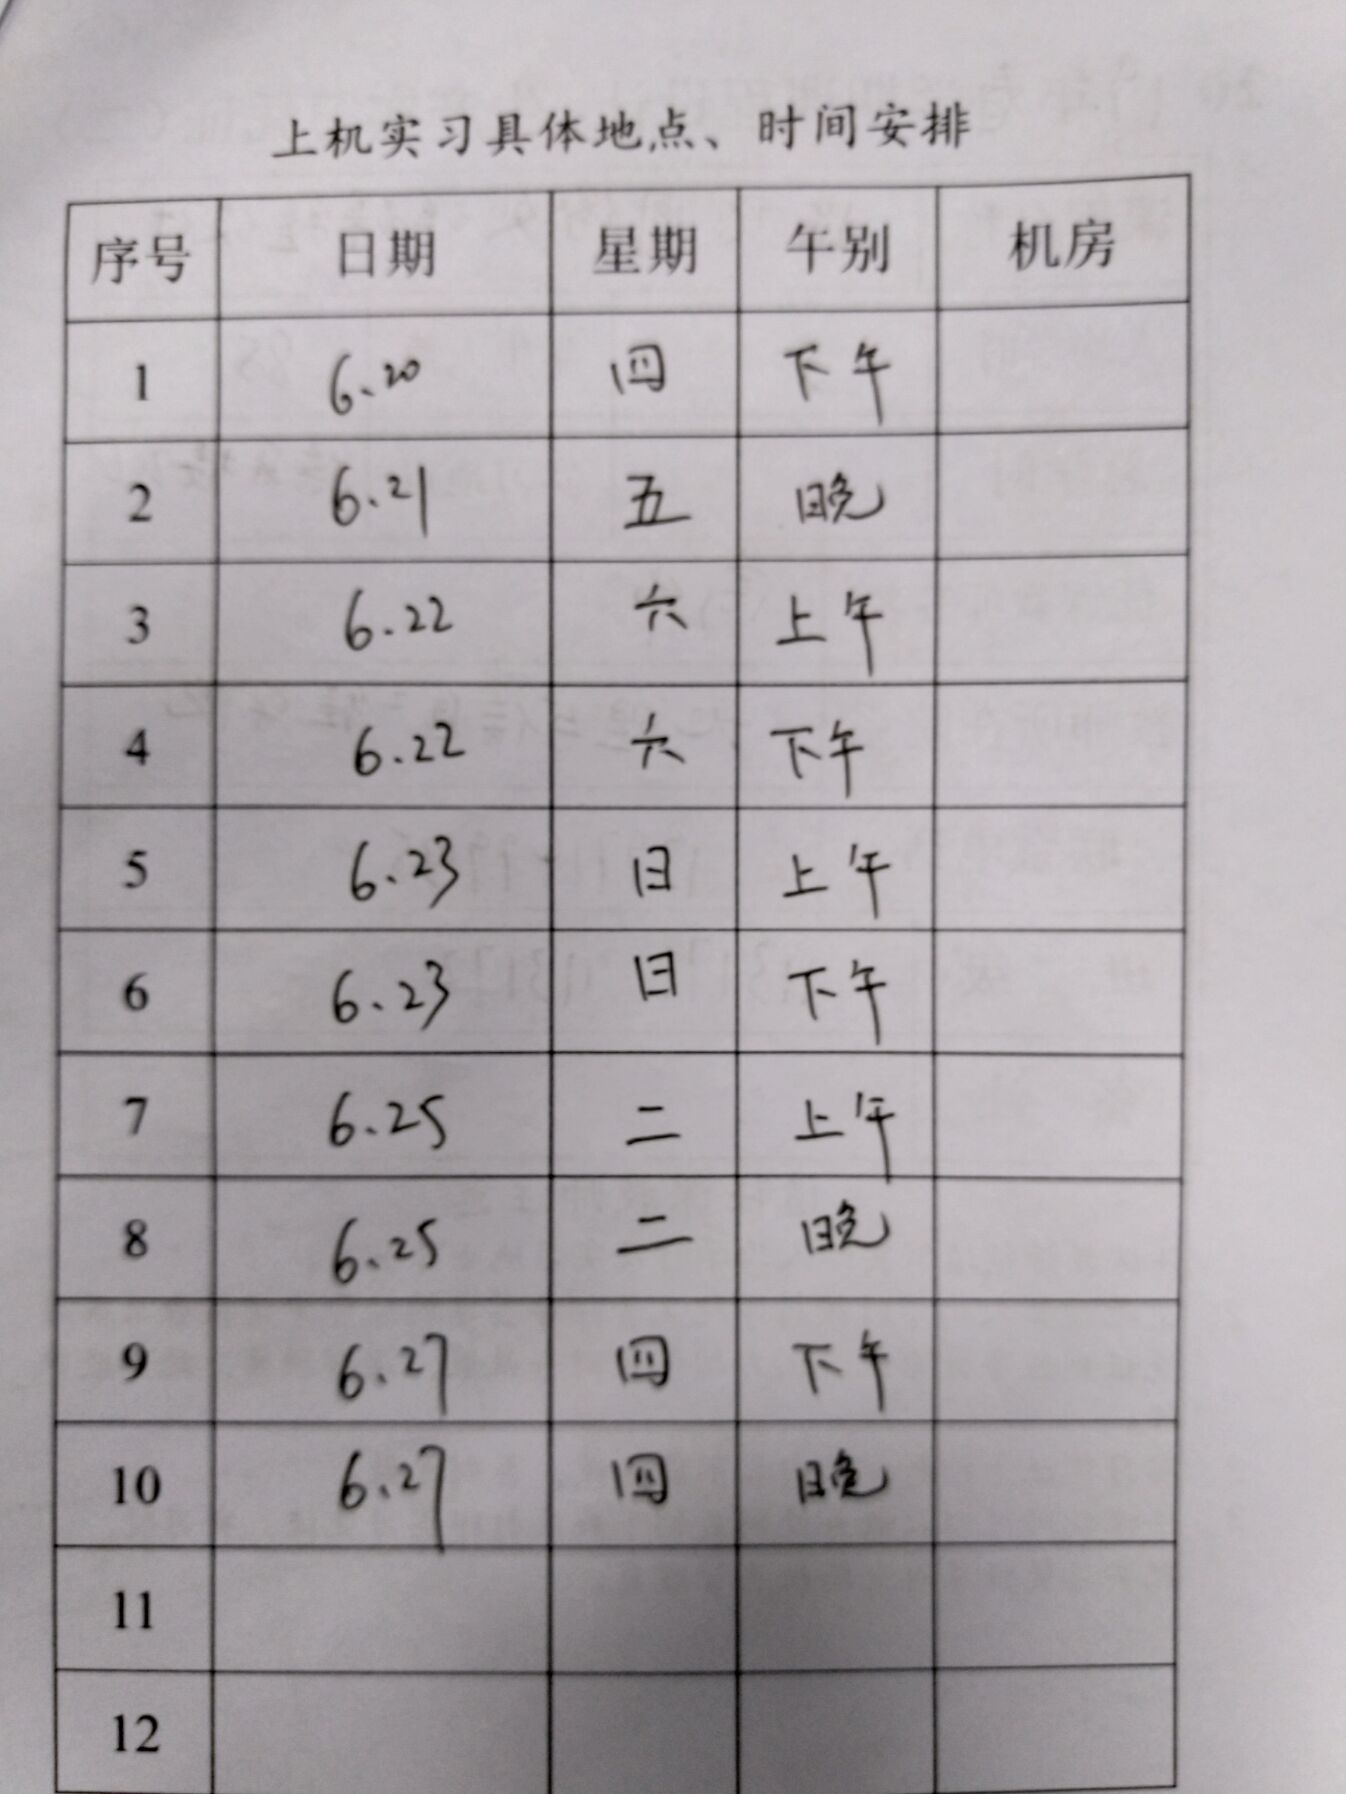 上机实习具体地点、时间安排
序号 日期 星期 午别 机房
1 6.20 四 下午
2 6.21 五 晚
3 6.22 六 上午
4 6.22 六 下午
5 6.23 日 上午
6 6.23 日 下午
7 6.25 二 上午
8 6.25 二 晚
9 6.27 四 下午
10 6.27 四 晚
11
12